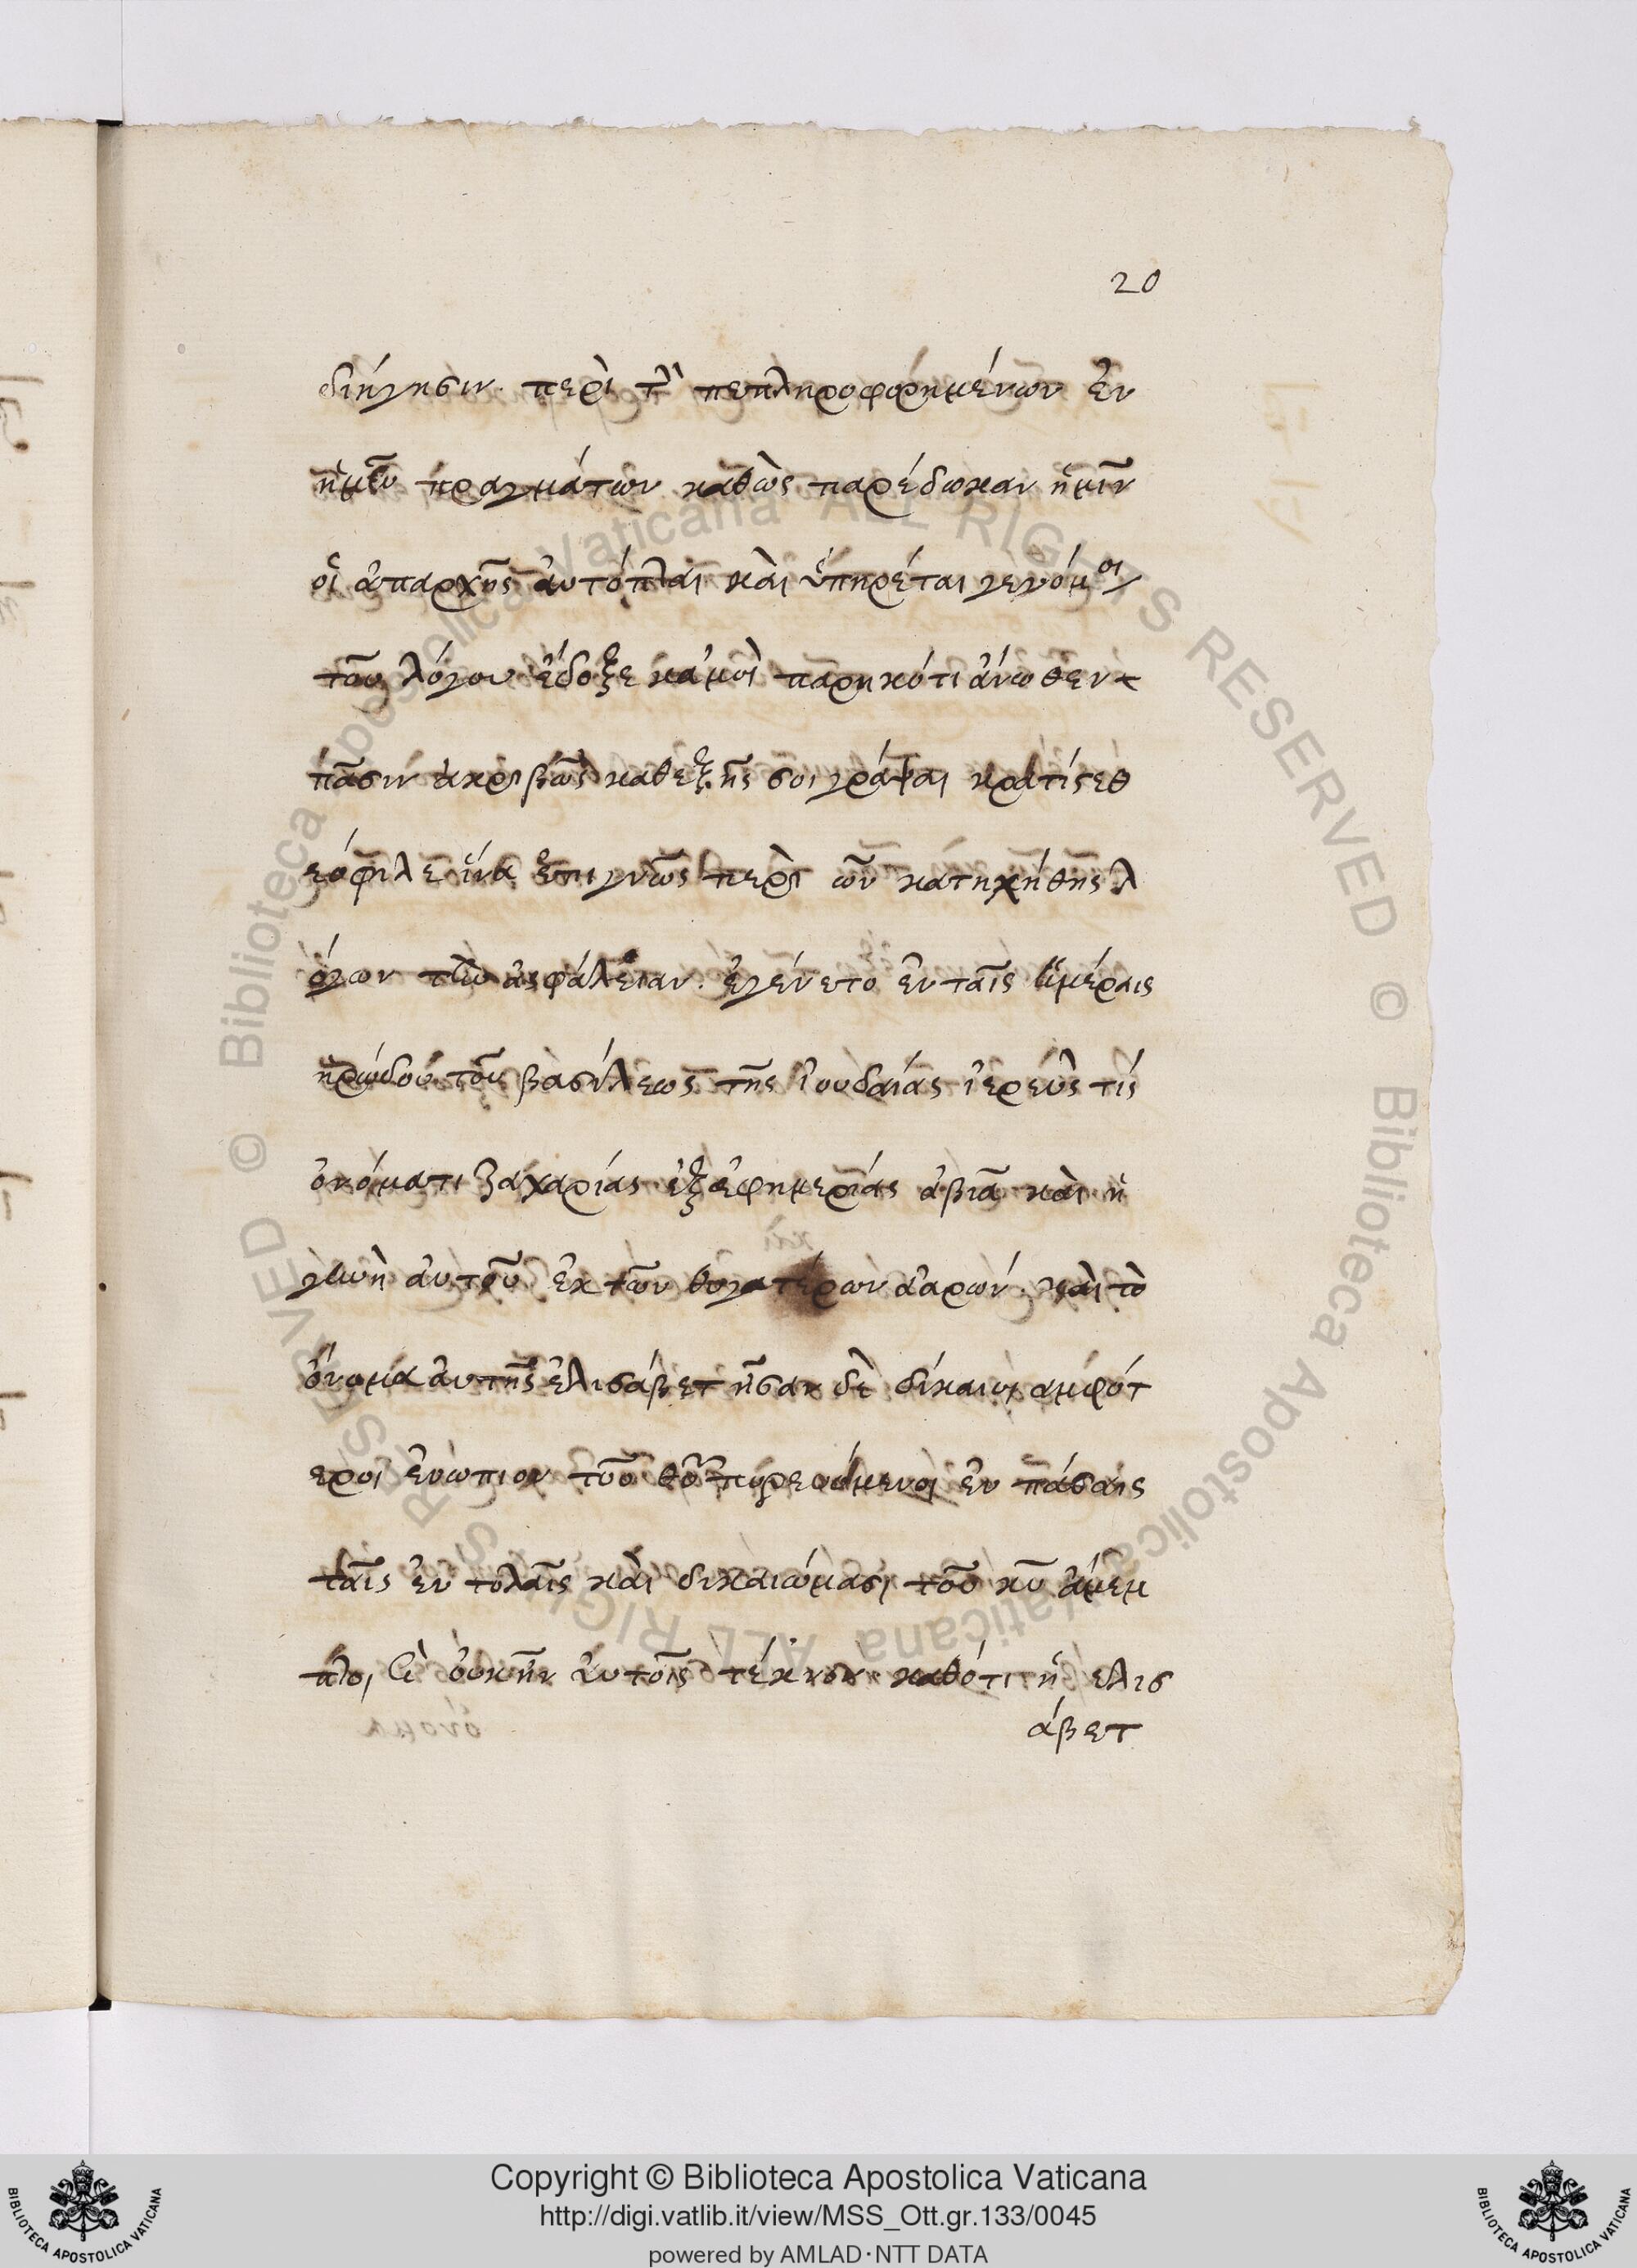 20
διήγησιν. περὶ τ̃ πεπληροφορημένων ἐν
ἡμῖν πραγμάτων καθὼς παρέδωκαν ἡμῖν
οἱ ἀπαρχῆς ἀυτόπται καὶ ὑπηρέται γενόμοι
τοῦ λόγου ἔδοξε κἀμοὶ παρηκότι ἄνωθεν
πᾶσιν ἀκριβῶς καθεξῆς σοι γράψαι κράτίςεθ
εόφιλε ἵνα ἐπιγνῶς περὶ ὧν κατηχήθης λ
όγων τὴν ἀσφάλειαν. ἐγένετο ἐν ταῖς ἡμέραις
ἡρώδου τοῦ βασιλέως τῆς ἰουδαίας ἱερεύς τίς
ὀνόματι ζαχαρίας ἐξεφημερίας ἀβιᾶ καὶ ἡ
γυνὴ ἀυτοῦ ἐκ τῶν θυγατέρων ἀαρών. καὶ τὸ
ὄνομα ἀυτῆς ἐλισάβετ ἦσαν δὲ δίκαιοι αμφότ
εροι ἐνώπιον τοῦ θῦ πορευόμενοι ἐν πάσαις
ταῖς ἐν τολαῖς καὶ δικαιώμασι τοῦ κῦ ἄμεμ
πτοι, καὶ ὀυκῆν ἀυτοῖς τέκνον καθότι ἡ ελισ
άβετ
Copyright © Biblioteca Apostolica Vaticana
http://digi.vatlib.it/view/MSS_Ott.gr.133/0045
powered by AMLAD·NTT DATA
BIBLIOTECA APOSTOLICA VATICANA
BIBLIOTECA APOSTOLICA VATICANA
© Biblioteca Apostolica Vaticana ALL RIGHTS RESERVED
© Biblioteca Apostolica Vaticana ALL RIGHTS RESERVED